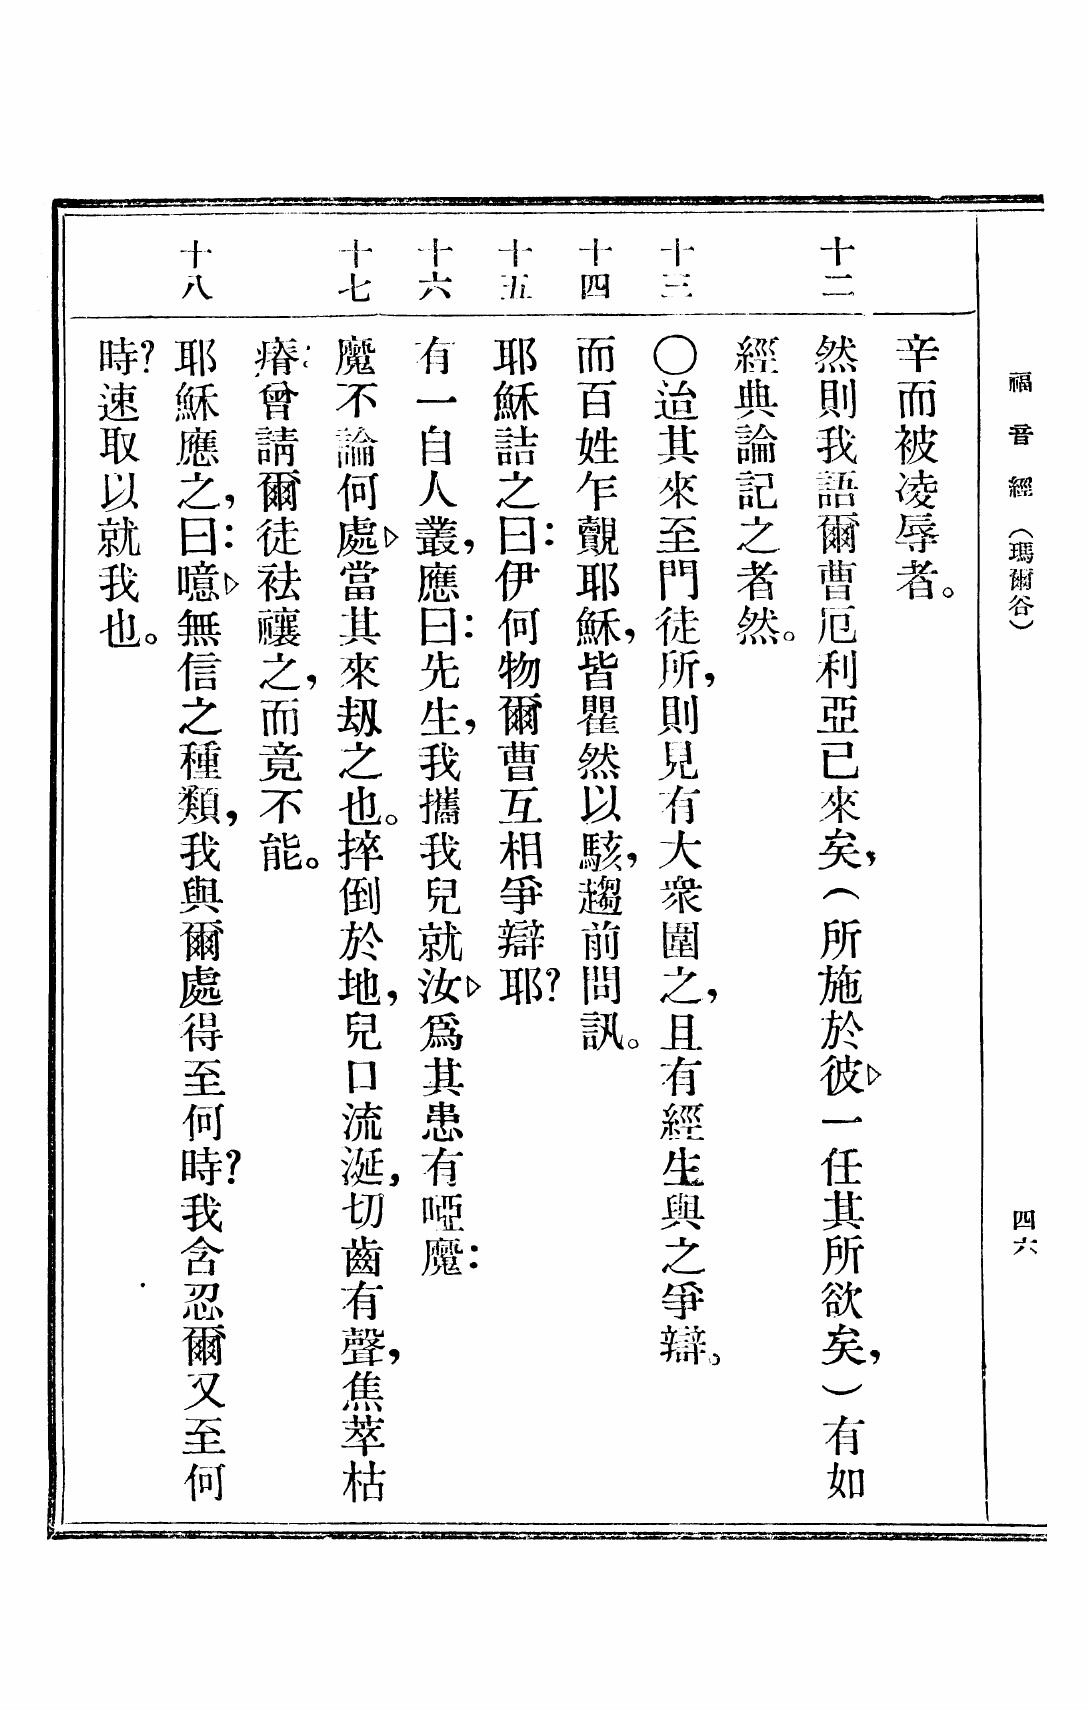 福音經（瑪爾谷）
四六
辛而被凌辱者。
十二
然則我語爾曹厄利亞已來矣，（所施於彼▷一任其所欲矣，）有如
經典論記之者然。
十三
〇迨其來至門徒所，則見有大衆圍之，且有經生與之爭辯。
十四
而百姓乍覿耶穌，皆瞿然以駭，趨前問訊。
十五
耶穌詰之曰：伊何物爾曹互相爭辯耶？
十六
有一自人叢，應曰：先生，我攜我兒就汝▷爲其患有啞魔：
十七
魔不論何處▷當其來刼之也。捽倒於地，兒口流涎，切齒有聲，焦萃枯
瘠：曾請爾徒祛禳之，而竟不能。
十八
耶穌應之，曰：噫▷無信之種類，我與爾處得至何時？我含忍爾又至何
時？速取以就我也。